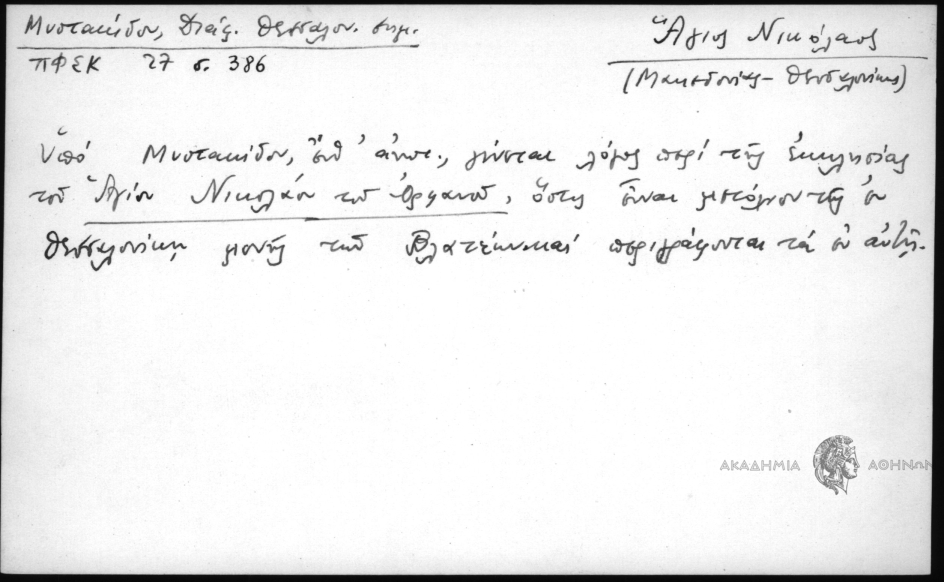 Μυστακίδου, Διάφ. Θεσσαλον. σημ.
ΠΦΣΚ 27 σ. 386
Ἅγιος Νικόλαος
(Μακεδονίας - Θεσσαλονίκης)
Ὑπό Μυστακίδου, ἔνθ' ἀνωτ., γίνεται λόγος περί τῆς ἐκκλησίας
τοῦ Ἁγίου Νικολάου τοῦ Ὀρφανοῦ, ὅστις εἶναι μετόχιον τῆς ἐν
Θεσσαλονίκῃ μονῆς τῶν Βλατέων καί περιγράφονται τά ἐν αὐτῇ.
ΑΚΑΔΗΜΙΑ ΑΘΗΝΩΝ